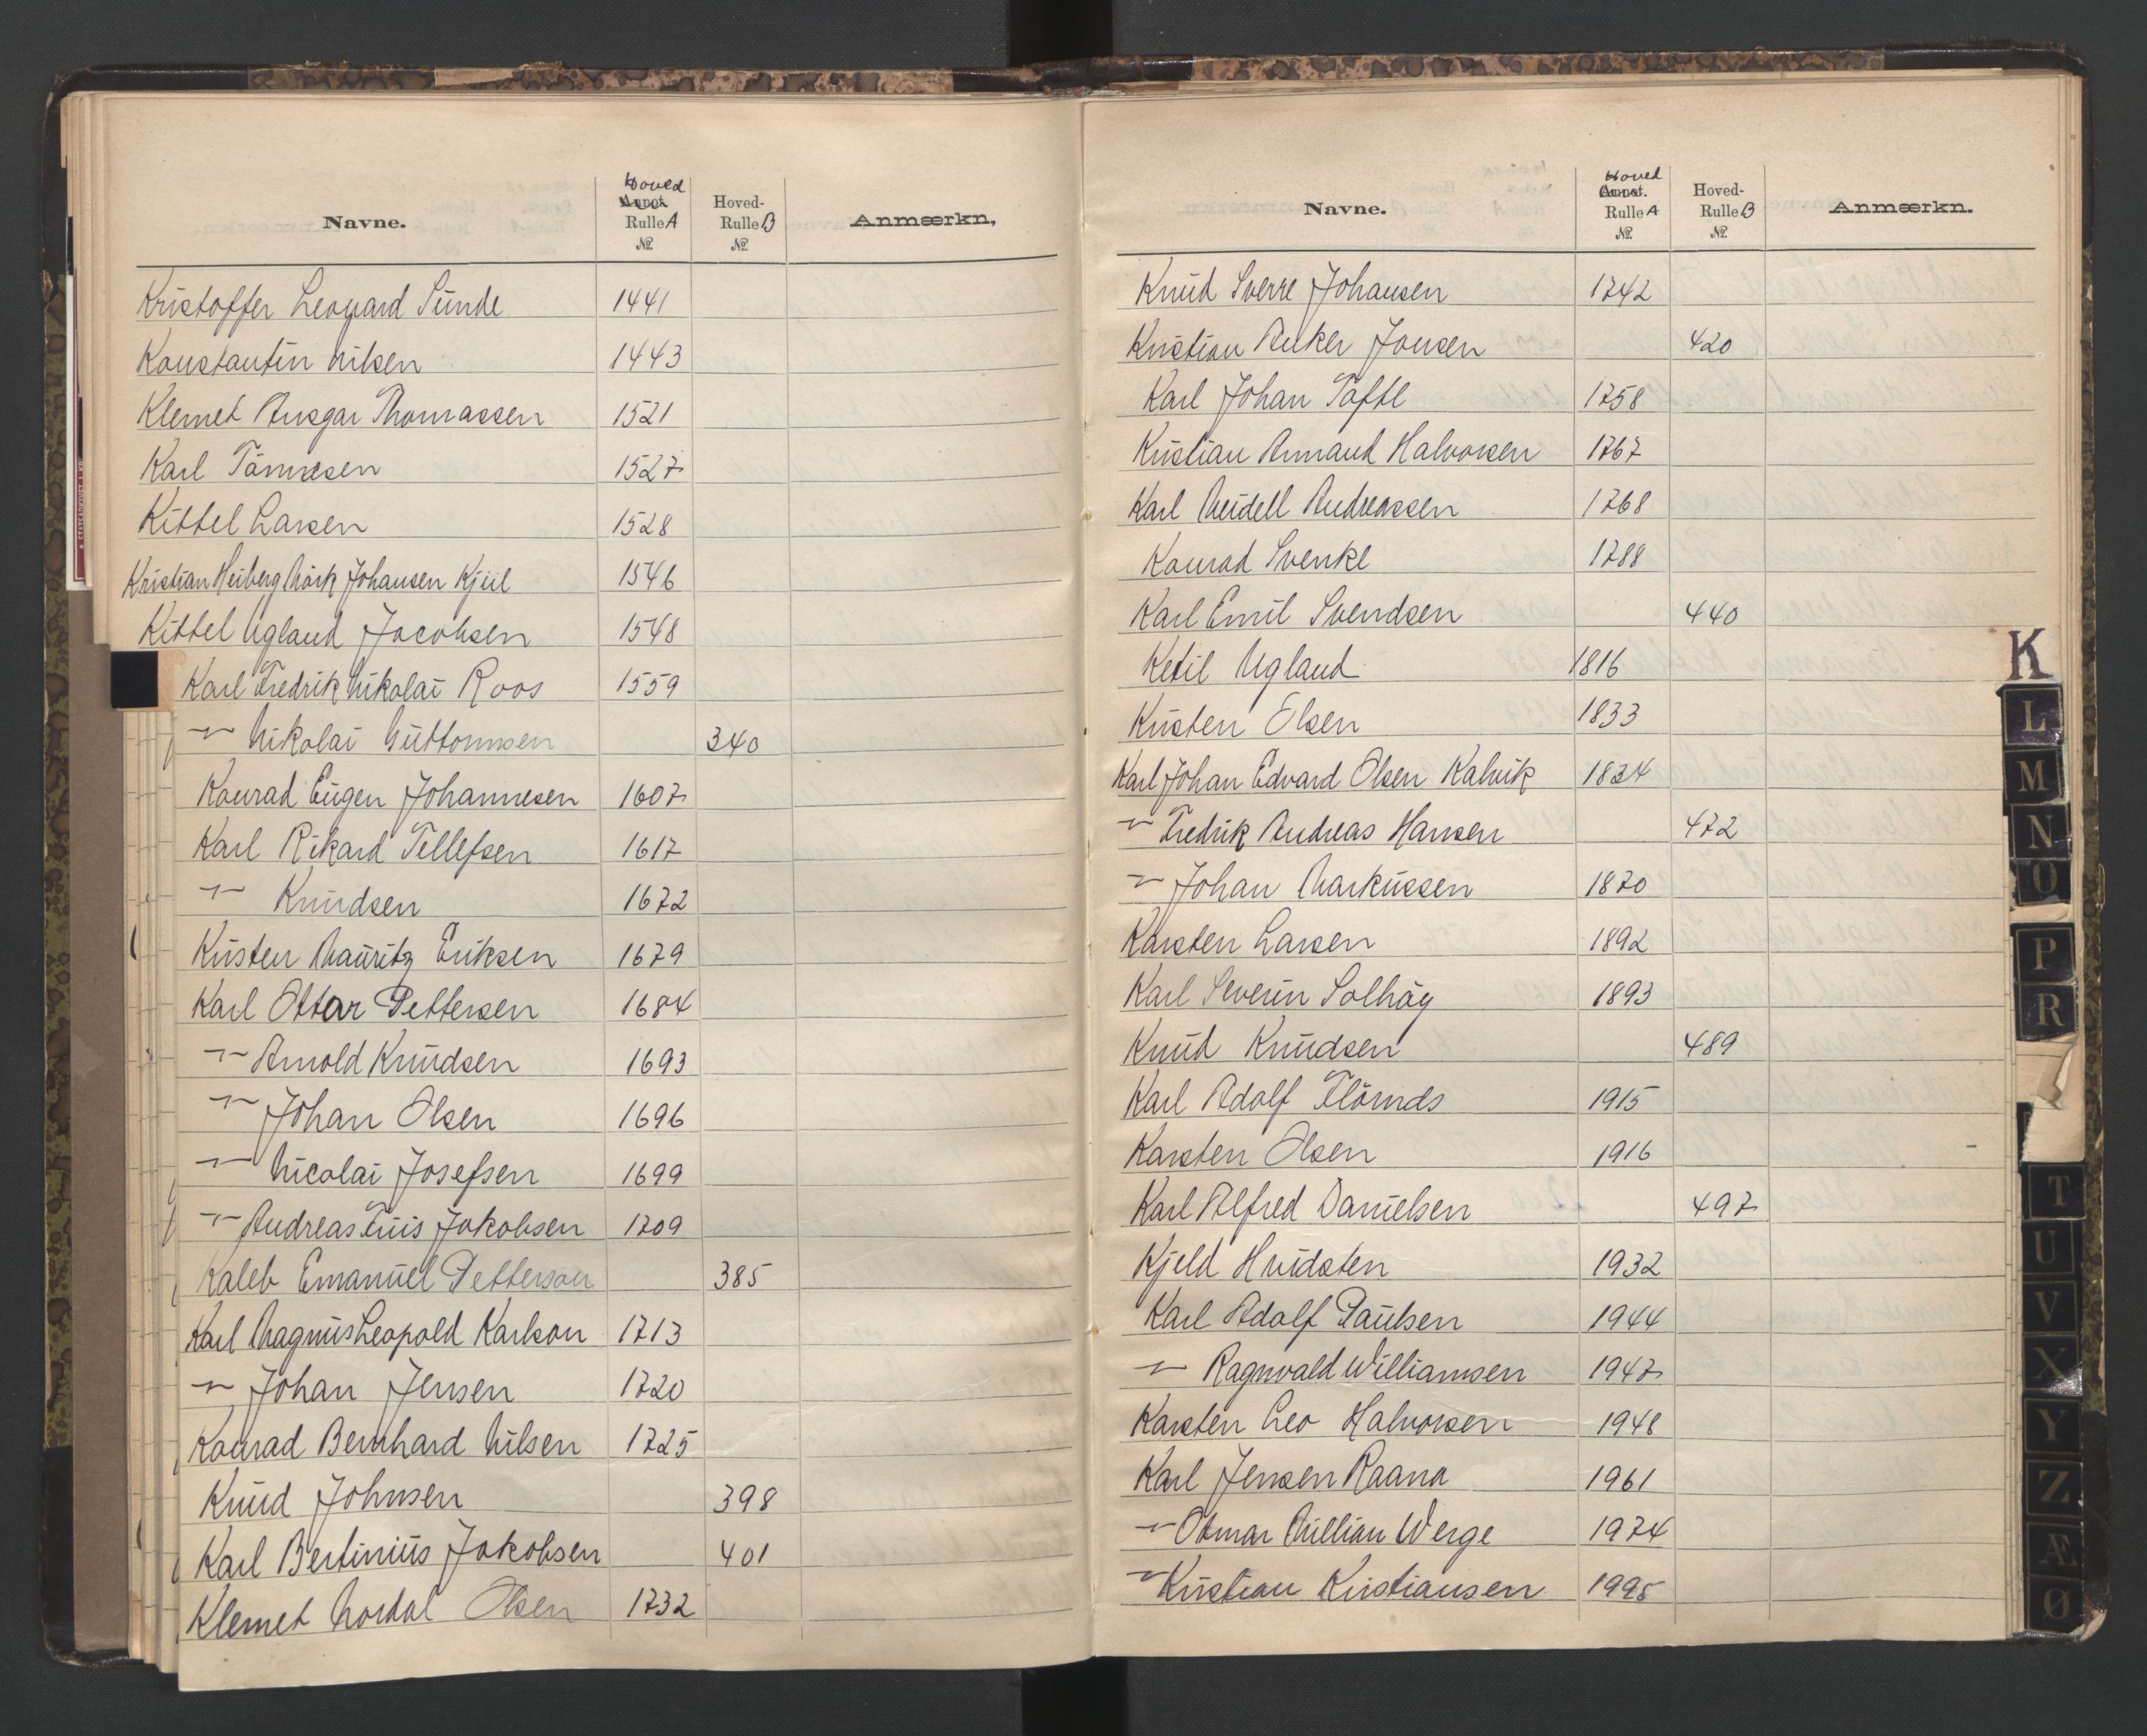 Navne. Hoved Annot. Rulle A № Hoved-Rulle B № Anmærkn.
Kristoffer Leonard Sünde 1441
Konstantin Nilsen 1443
Klemet Ansgar Thomassen 1521
Karl Tönnesen 1527
Kittel Larsen 1528
Kristian Heiberg Mörk Johansen Kjül 1546
Kittel Ugland Jacobsen 1548
Karl Fredrik Nikolai Roos 1559
-"- Nikolai Güttormsen 340
Konrad Eügen Johannesen 1607
Karl Rikard Tellefsen 1617
-"- Knüdsen 1672
Kristen Maüritz Eriksen 1679
Karl Ottar Pettersen 1684
-"- Arnold Knüdsen 1693
-"- Johan Olsen 1696
-"- Nicolai Josefsen 1699
-"- Andreas Jakobsen 1709
Kaleb Emanüel Petterson 385
Karl Magnüs Leopold Karlson 1713
-"- Johan Jensen 1720
Konrad Bernhard Nilsen 1725
Knüd Johnsen 398
Karl Bertiniüs Jakobsen 401
Klemet Nordal Olsen 1732
Navne. Hoved Annot. Rulle A № Hoved-Rulle B № Anmærkn.
Knüd Sverre Johansen 1742
Kristian Anker Jonsen 420
Karl Johan Tafte 1758
Kristian Armand Halvorsen 1767
Karl Meidell Andreassen 1768
Konrad Svenke 1788
Karl Emil Svendsen 440
Ketil Ugland 1816
Kristen Olsen 1833
Karl Johan Edvard Olsen Kalvik 1834
-"- Fredrik Andreas Hansen 472
-"- Johan Marküssen 1870
Karsten Larsen 1892
Karl Severin Solhäg 1893
Knüd Knüdsen 489
Karl Adolf Flörnds 1915
Karsten Olsen 1916
Karl Alfred Danielsen 497
Kjeld Hvidsten 1932
Karl Adolf Paülsen 1944
-"- Ragnvald Williamsen 1947
Karsten Leo Halvorsen 1948
Karl Jensen Raana 1961
-"- Otmar Millian Werge 1974
-"- Kristian Kristiansen 1995
K
L
M
N
O
P
R
T
U
V
X
Y
Z
Æ
Ø